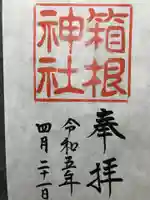 奉拝
箱根
神社
令和五年
四月二十一日